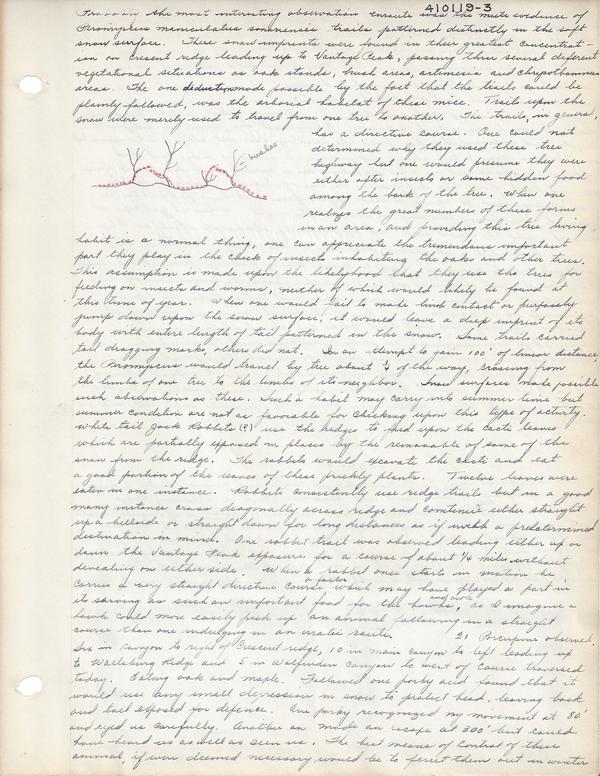 410119-3
the most interesting observation enroute was the mute evidence of
Peromyscus maniculatus sonoriensis trails patterned distinctly in the soft
snow surface. These snow imprints were found in their greatest concentrat-
ion on crescent ridge leading up to Vantage Peak, passing thru several different
vegetational situations as oak stands, brush areas, artimesia and chrysothamnus
areas. The one deduction made possible by the fact that the trails could be
plainly followed, was the arborial habitat of these mice. Trails upon the
snow were merely used to travel from one tree to another. The trails, in general,
has a directive course. One could not
determined why they used these tree
highway but one would presume they were
either after insects or some hidden food
among the bark of the tree. When one
realizes the great numbers of these forms
in an area, and providing this tree living
bushes
habit is a normal thing, one can appreciate the tremendous important
part they play in the check of insects inhabiting the oaks and other trees.
This assumption is made upon the likelyhood that they use the trees for
feeding on insects and worms, neither of which would likely be found at
this time of year. When one would fail to make limb contact or purpossly
jump down upon the snow surface, it would leave a deep imprint of its
body with entire length of tail patterned in the snow. Some trails carried
tail dragging marks, others did not. In an attempt to gain 100' of linear distance,
the Peromyscus would travel by tree about of the way, crossing from
the limbs of one tree to the limbs of its neighbor. Snow surfaces make possible
such observations as these. Such a habit may carry into summer time but
summer condition are not as favorable for checking upon this type of activity.
White tail Jack Rabbits (?) use the ridges to feed upon the cacti leaves
which are partially exposed in places by the removable of some of the
snow from the ridge. The rabbits would excavate the cacti and eat
a good portion of the leaves of these prickly plants. Twelve leaves were
eaten in one instance. Rabbits consistently use ridge trails but in a good
many instance cross diagonally across ridges and continue either straight
up a hillside or straight down for long distances as if with a predetermined
destination in mind. One rabbit trail was observed leading either up or
down the Vantage Peak exposure for a course of about 1/4 miles without
deviating on either side. When a rabbit once starts in motion he
carries a very straight directive course a factor which may have played a part in
its serving as such an important food for the hawks, and owls as I imagine a
hawk could more easily pick up an animal following in a straight
course than one indulging in an eratic route. 21 Porcupine observed.
Six in canyon to right of Crescent ridge, 10 in main canyon to left leading up
to Ridge and 5 in canyon to west of course traversed
today. Eating oak and maple. Followed one porky and found that it
would use any small depression in snow to protect head, leaving back
and tail exposed for defence. One porky recognized my movement at 80'
and eyed us carefully. Another on made an escape at 300' but could
have heard us as well as seen us. The best means of control of these
animal, if ever deemed necessary would be to ferret them out in winter